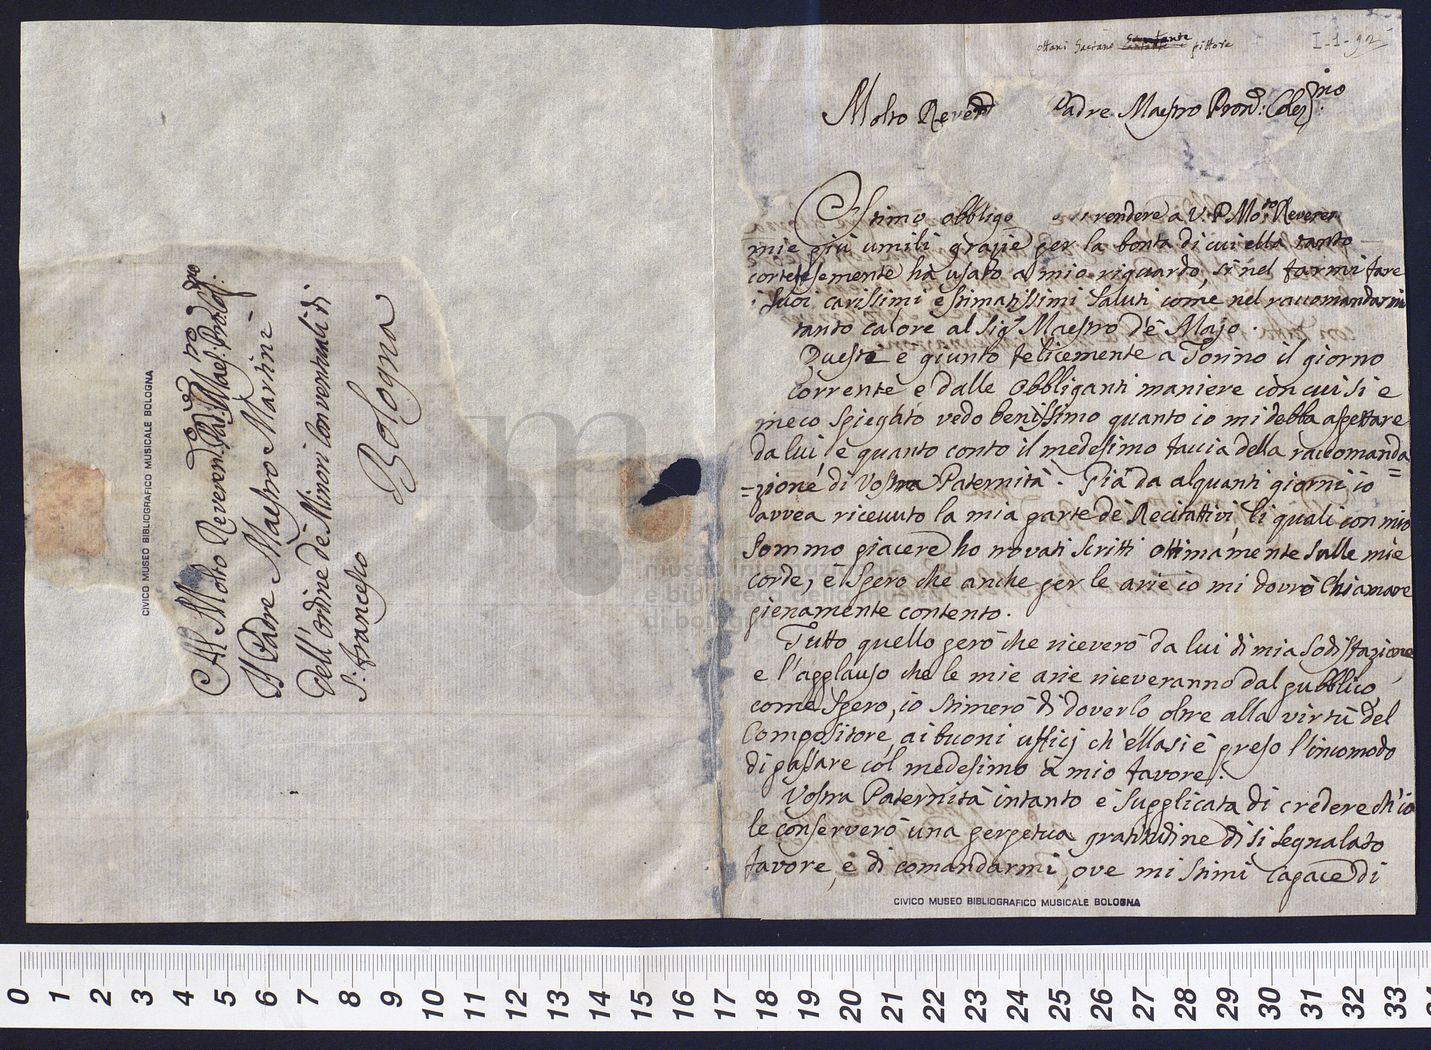 Ottani Gaetano Cantante pittore
I-1-92
Molto Reverdo Padre Maestro Prone: Coles:mo
Stimo obbligo rendere a V. P. Mo:to Reveren
mie più umili grazie per la bontà di cui ella tanto
cortesemente ha usato a mio riguardo, si nel farmi fare
i suoi carissimi e stimatissimi saluti come nel raccomandarmi
tanto calore al Sigr Maestro de Majo.
Questo è giunto felicemente a Torino il giorno
corrente e dalle obbliganti maniere con cui si è
meco spiegato vedo benissimo quanto io mi debba aspettare
da lui, e quanto conto il medesimo faccia della raccomanda
=zione di Vostra Paternità. Già da alquanti giorni io
avea ricevuto la mia parte de Recitattivi, li quali con mio
sommo piacere ho trovati scritti ottimamente sulle mie
corde, e spero che anche per le arie io mi dovrò chiamare
pienamente contento.
Tutto quello però che riceverò da lui di mia sodisfazione,
e l'applauso che le mie arie riceveranno dal pubblico,
come spero, io stimerò di doverlo oltre alla virtù del
Compositore, ai buoni ufficj ch'ella si è preso l'incomodo
di passare col medesimo a mio favore.
Vostra Paternità intanto è supplicata di credere ch'io
le conserverò una perpetua gratitudine di sì segnalato
favore, e di comandarmi, ove mi stimi capace di
CIVICO MUSEO BIBLIOGRAFICO MUSICALE BOLOGNA
Al Molto Reverendo
Il Padre Maestro Martini
dell'Ordine de Minori Conventuali di
S: Francesco
Bologna
CIVICO MUSEO BIBLIOGRAFICO MUSICALE BOLOGNA
museo internazionale
e biblioteca della musica
di bologna
0 1 2 3 4 5 6 7 8 9 10 11 12 13 14 15 16 17 18 19 20 21 22 23 24 25 26 27 28 29 30 31 32 33